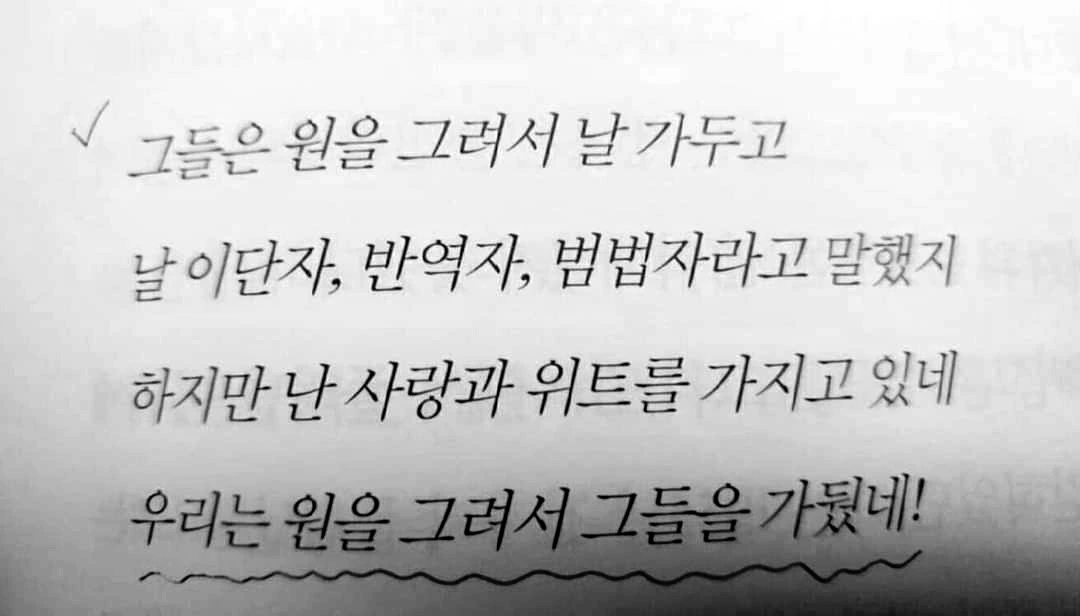 그들은 원을 그려서 날 가두고
날 이단자, 반역자, 범법자라고 말했지
하지만 난 사랑과 위트를 가지고 있네
우리는 원을 그려서 그들을 가뒀네!